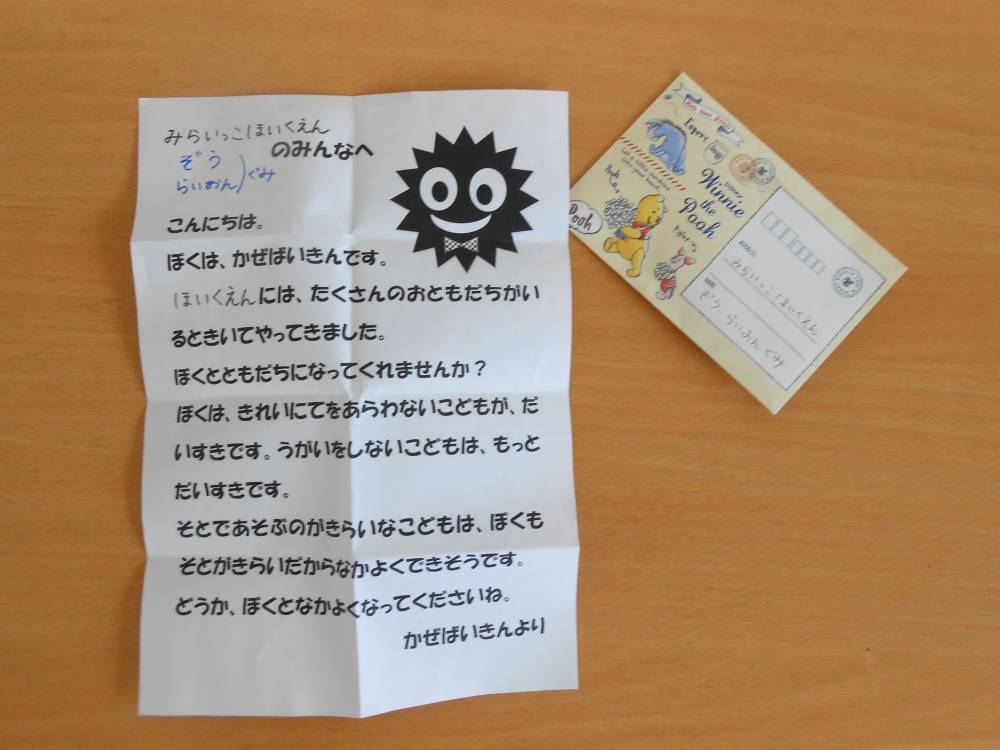 みらいっこほいくえん
のみんなへ
ぞう
らいおん)ぐみ
こんにちは。
ぼくは、かぜばいきんです。
ほいくえんには、たくさんのおともだちがい
るときいてやってきました。
ぼくとともだちになってくれませんか？
ぼくは、きれいにてをあらわないこどもが、だ
いすきです。うがいをしないこどもは、もっと
だいすきです。
そとであそぶのがきらいなこどもは、ぼくも
そとがきらいだからなかよくできそうです。
どうか、ぼくとなかよくなってくださいね。
かぜばいきんより
Eeyore
Let a little sunshine
into your heart.
Pooh
Pooh
Disney
Winnie
the
Pooh
Piglet
ADDRESS
みらいっこほいくえん
NAME
ぞう、らいおんぐみ